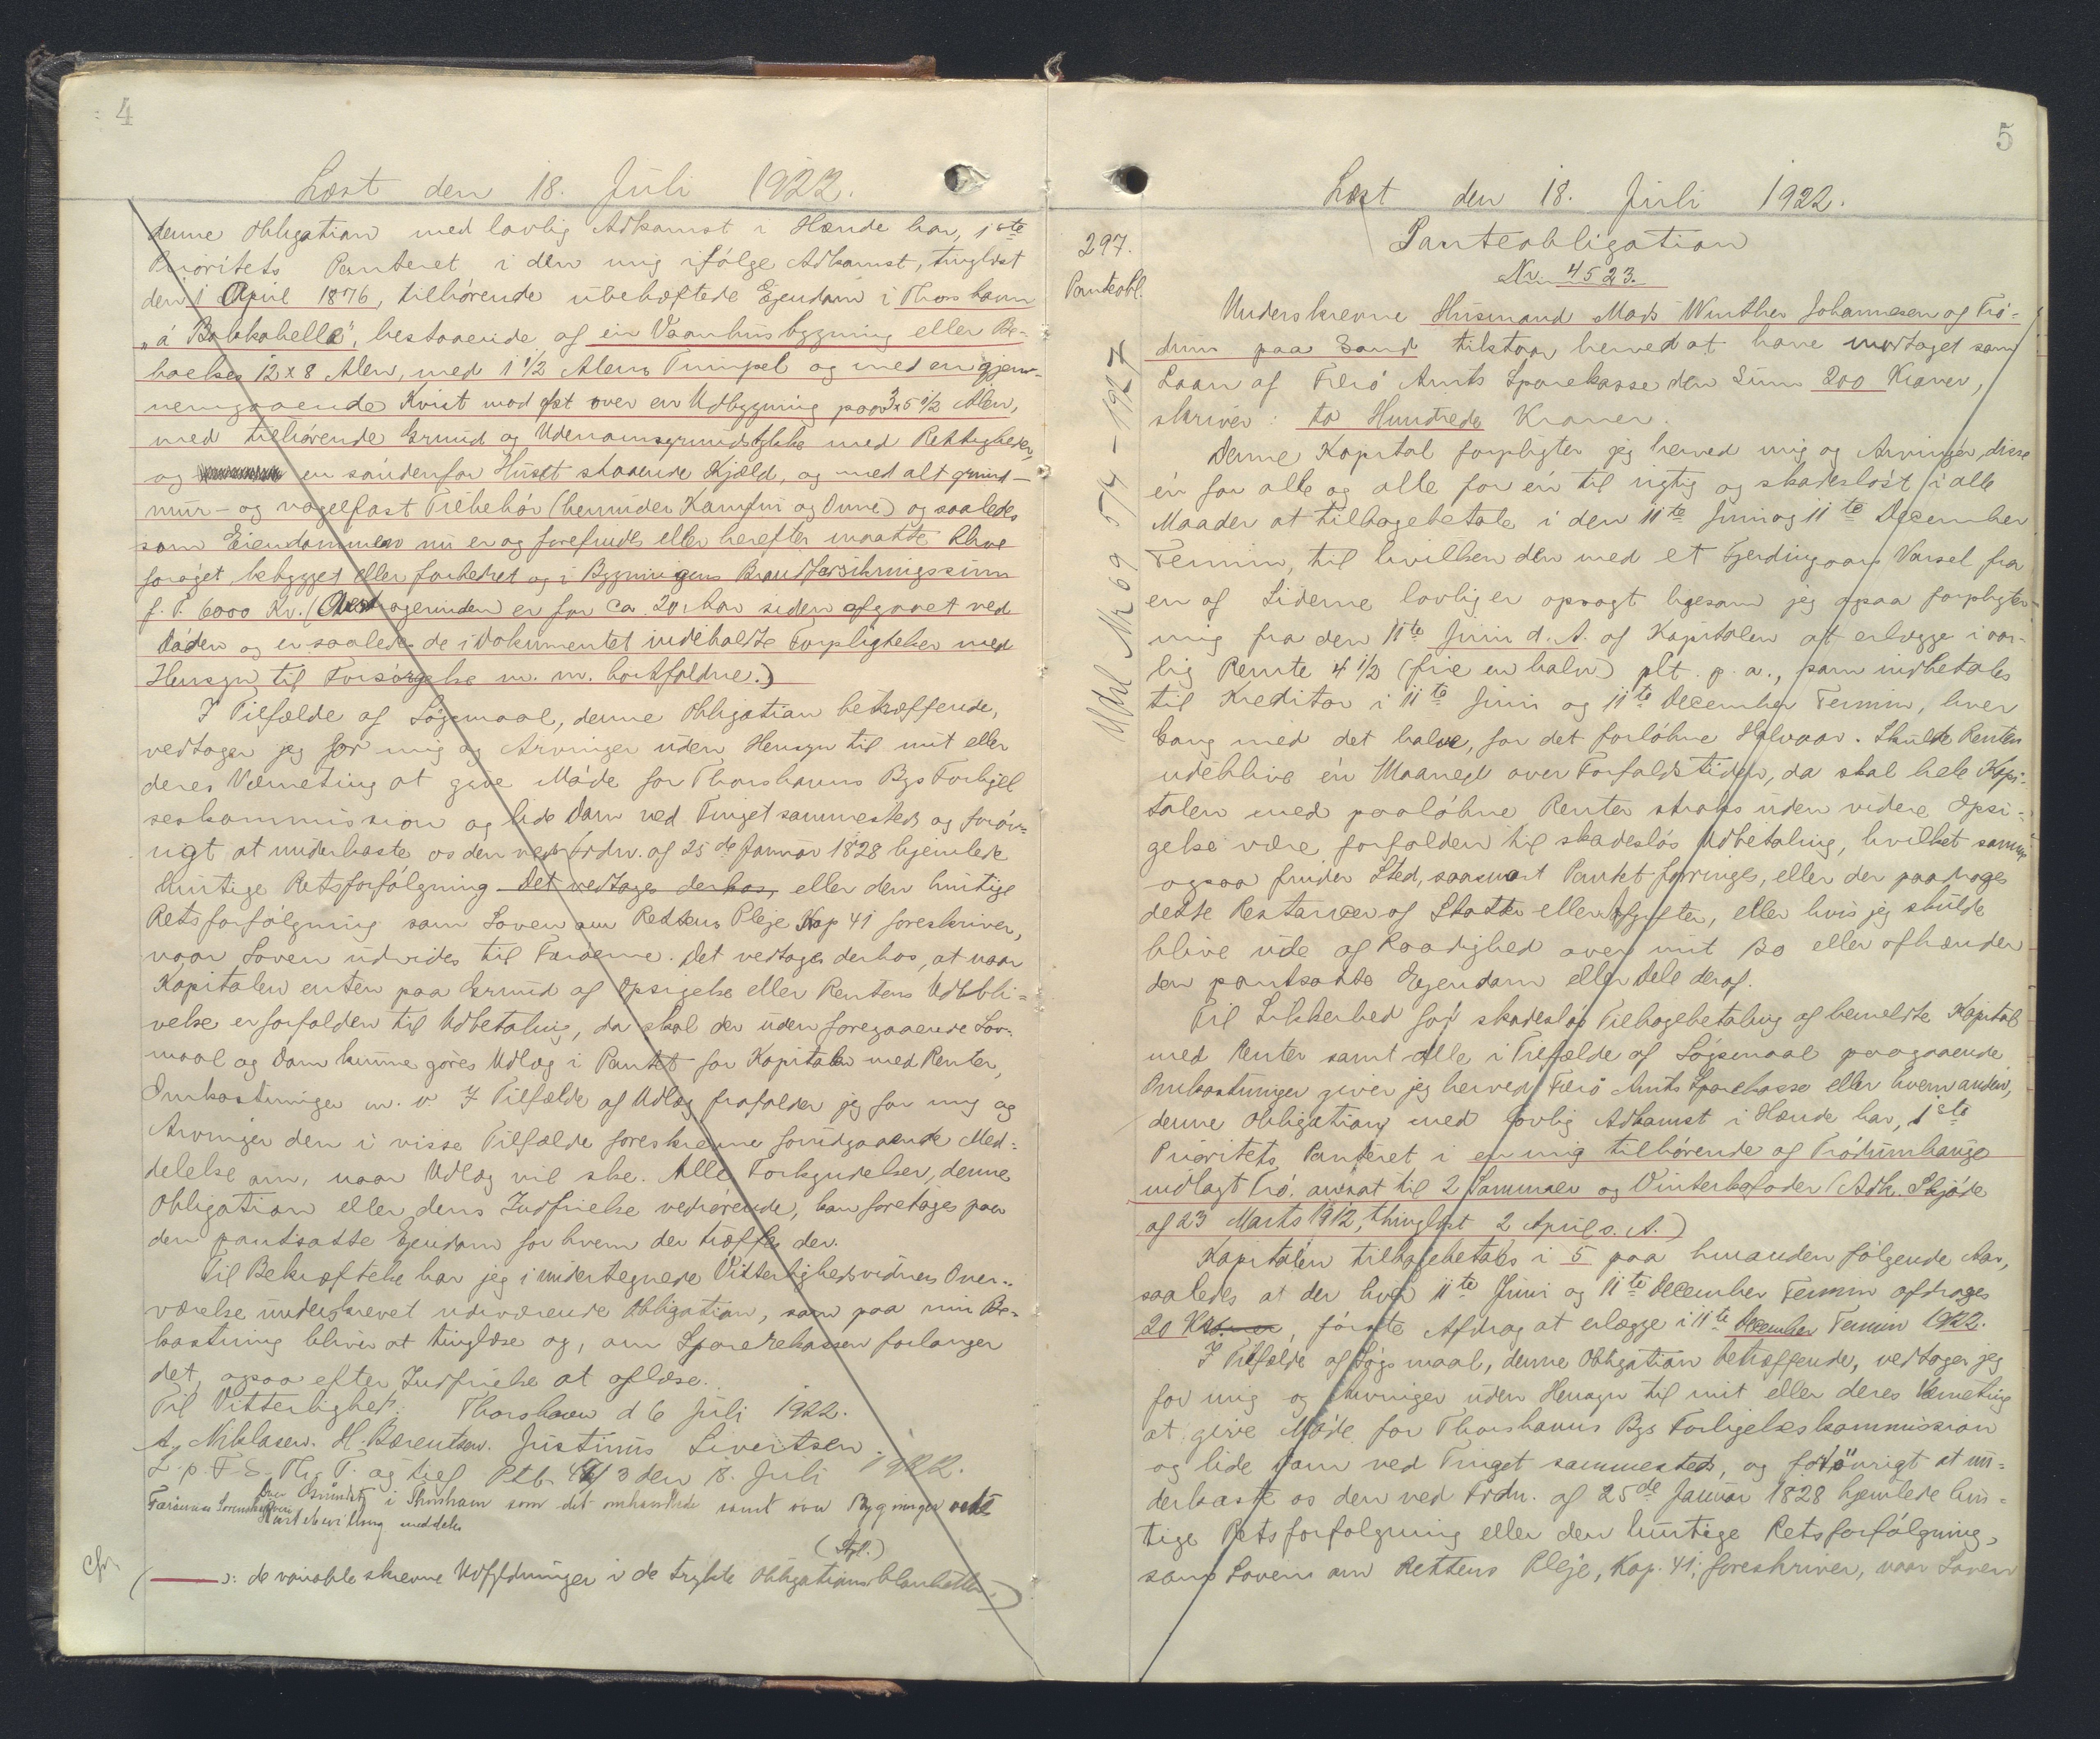 4
Læst den 18. Juli 1922.
denne Obligation med lovlig Adkomst i Hænde har, 1ste
Prioritets Panteret i den mig ifølge Adkomst, tinglæst
den 1 April 1876, tilhørende ubehæftede Ejendom i Thorshavn
„á Bakkahella", bestaaende af en Vaanhusbygning eller Be-
boelses 12 x 8 Alen, med 1 1/2 Alens Trimpel og med en gjen-
nemgaaende Kvist mod Øst over en Udbygning paa 3 x 5 1/2 Alen,
med tilhørende Grund og Udenomsgrundstykke med Rettigheder,
og en søndenfor Huset staaende Kjæld, og med alt grund-
mur- og nagelfast Tilbehør (herunder Komfur og Ovne) og saaledes
som Eiendommen nu er og forefindes eller herefter maatte blive
forøget, bebygget eller forbedret og i Bygningens Brandforsikringssum
f. T. 6000 Kr. (Aftægtsgerinden er for ca 20 Aar siden afgaaet ved
Døden og er saaledes de i Dokumentet indeholdte Forpligtelser med
Hensyn til Forsørgelse m. m. bortfaldne.)
I Tilfælde af Søgsmaal, denne Obligation betræffende,
vedtager jeg for mig og Arvinger uden Hensyn til mit eller
deres Værneting at give Møde for Thorshavns Bys Forligel
seskommission og lide Dom ved Tinget sammesteds og forøv-
rigt at underkaste os den ved Frdn. af 25de Januar 1828 hjemlede
hurtige Retsforfølgning Det vedtages derhos, eller den hurtige
Retsforfølgning som Loven om Rettens Pleje Kap 41 foreskriver,
naar Loven udvides til Færøerne. Det vedtages derhos, at naar
Kapitalen enten paa Grund af Opsigelse eller Rentens Udebli-
velse er forfalden til Udbetaling, da skal der uden foregaaende Lov-
maal og Dom kunne gøres Udlæg i Pantet for Kapitalen med Renter,
Omkostninger m. v. I Tilfælde af Udlæg frafalder jeg for mig og
Arvinger den i visse Tilfælde foreskrevne forudgaaende Med-
delelse om, naar Udlæg vil ske. Alle Forkyndelser, denne
Obligation eller dens Indfrielse vedrørende, kan foretages paa
den pantsatte Ejendom for hvem der træffes der.
Til Bekræftelse har jeg i undertegnede Vitterlighedsvidners Over-
værelse underskrevet nærværende Obligation, som paa min Be-
kostning bliver at tinglæse og, om Sparekassen forlanger
det, ogsaa efter Indfrielse at aflæse.
Til Vitterlighed: Thorshavn d 6 Juli 1922.
A. Niklasen. H. Bærentsen. Justinus Sivertsen.
L. p. F. S. Th. T. og tilf Ptb. 4 3 den 18. Juli 1922.
over Grundst i Thorshavn som det omhandlede samt om Bygninger
meddeles
cfr.
(Afsl.)
( ɔ: de variable skrevne Udfyldninger i de trykte Obligationsblanketter)
5
Læst den 18. Juli 1922.
297.
Panteobl.
Panteobligation
Nr. 4523.
Underskrevne Husmand Mads Winther Johannesen og Trö-
dum paa Sand tilstaar herved at have modtaget som
Laan af Færö Amts Sparekasse den Sum 200 Kroner,
skriver: to Hundrede Kroner.
Denne Kapital forpligter jeg herved mig og Arvinger, disse
én for alle og alle for én til rigtig og skadesløst i alle
Maader at tilbagebetale i den 11te Juni og 11te December
Termin, til hvilken den med et Fjerdingaars Varsel fra
en af Siderne lovlig er opsagt ligesom jeg ogsaa forpligter
mig fra den 11te Juni d. A. af Kapitalen at erlægge i aar-
lig Rente 4 1/2 (fire en halv) pCt. p. a., som indbetales
til Kreditor i 11te Juni og 11te December Termin, hver
Gang med det halve, for det forløbne Halvaar. Skulde Renten
udeblive én Maaned over Forfaldstiden, da skal hele Kapi-
talen med paaløbne Renter straks uden videre Opsi-
gelse være forfalden til skadesløs Udbetaling, hvilket samme
ogsaa finder Sted, saasnart Pantet forringes, eller der paadrages
dette Restancer af Skatter eller Afgifter, eller hvis jeg skulde
blive ude af Raadighed over mit Bo eller afhænder
den pantsatte Ejendom eller Dele deraf.
Til Sikkerhed for skadesløs Tilbagebetaling af bemeldte Kapital
med Renter samt alle i Tilfælde af Søgsmaal paagaaende
Omkostninger giver jeg herved Færö Amts Sparekasse eller hvem anden,
denne Obligation med lovlig Adkomst i Hænde har, 1ste
Prioritets Panteret i en mig tilhørende af Trödumhauge
udlagt Trö, ansat til 2 Sommer og Vinterkofoder (Adk. Skjøde
af 23 Marts 1912, thinglæst 2 April s. A.)
Kapitalen tilbagebetales i 5 paa hinanden følgende Aar,
saaledes at der hver 11te Juni og 11te December Termin afdrages
20 Kroner, første Afdrag at erlægge i 11te December Termin 1922.
I Tilfælde af Søgsmaal, denne Obligation betræffende, vedtager jeg
for mig og Arvinger uden Hensyn til mit eller deres Værneting
at give Møde for Thorshavns Bys Forligelseskommission
og lide Dom ved Tinget sammesteds, og forövrigt at un-
derkaste os den ved Frdn. af 25de Januar 1828 hjemlede hur-
tige Retsforfølgning eller den hurtige Retsforfølgning,
som Loven om Rettens Pleje, Kap. 41, foreskriver, naar Loven
Udsl Nr 69 5/4 - 1927